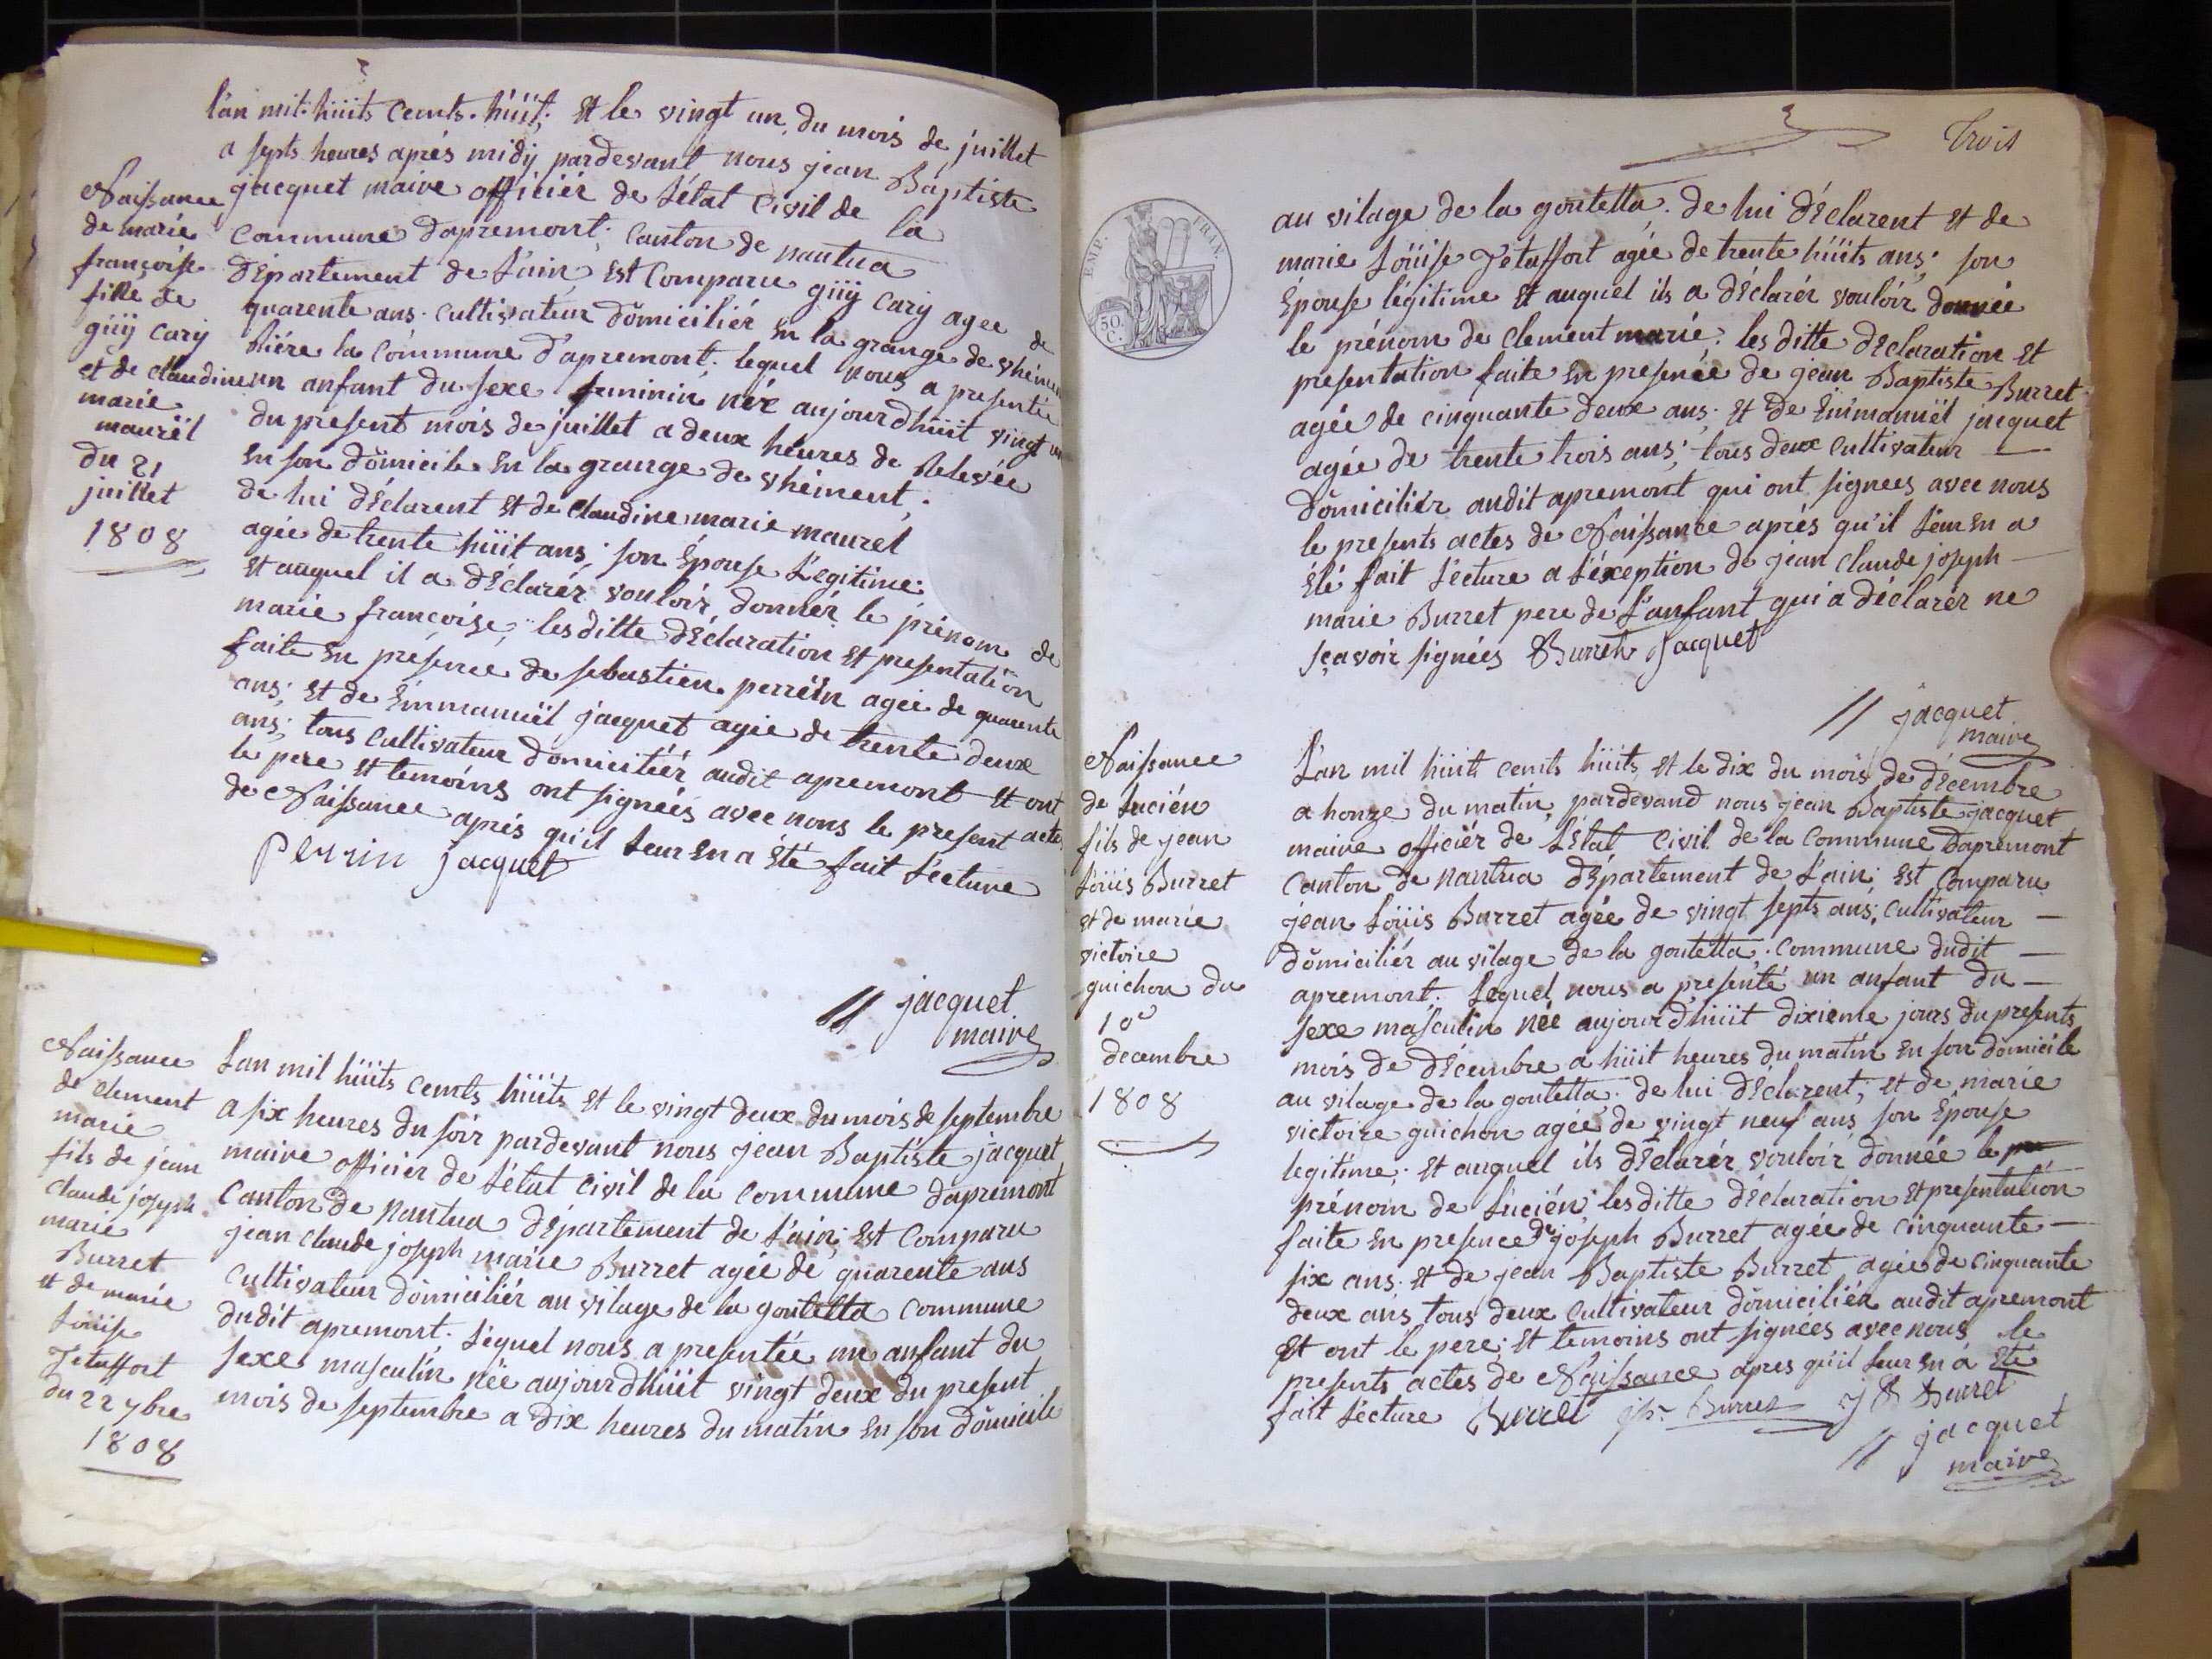 l'an mil huits cents huit; Et le vingt un du mois de juillet
a septs heures aprés midÿ pardevant nous jean Baptiste
jacquet maire officiér de l'état Civil de la
Commune dapremont; Canton de nantua
dÉpartement de l'ain; Est Comparu güÿ Carÿ agee de
quarente ans. Cultivateur dömiciliér En la grange de
bliére la Cómmune d'apremont; lequel nous a presentée
un anfant du sexe feminin néé aujourdhüit vingt un
du present mois de juillet a deux heures de Relevée
En son dömicile En la grange de vhément;
de lui dÉclarent Et de Claudine marie maurel
agée de trente hüit ans; son Épouse Légitime;
Et auquel il a dÉclarér vouloir donnér le prénom de
marie francoise; lesditte dÉclaration Et presentation
faite En présence de sebastien perrein agée de quarente
ans; Et de Emmanuël jacquet agée de trente deux
ans; tous Cultivateur domiciliér audit apremont Et ont
le pere Et temoins ont signéés avec nous le present acte
de Naissance aprés qu'il leur En a Été fait lécture
perrin jacquet
jacquet
maire
Naissance
de marie
françoise
fille de
güÿ Carÿ
et de claudine
marie
mauréll
du 21
juillet
1808
Naissance
de Clement
marie
fils de jean
Claude joseph
marie
Burret
et de marie
Löüise
Jetaffort
du 22 7bre
1808
Lan mil hüits Cents hüits Et le vingt deux du mois de septembre
a six heures du soir pardevant nous jean Baptiste jacquet
maire officiér de l'état Civil de la Commune dapremont
Canton de Nantua dÉpartement de l'ain; Est Comparu
jean Claude joseph marie Burret agée de quarente ans
Cultivateur dömiciliér au vilage de la goutetta Commune
dudit apremont; Léquel nous a presentée un anfant du
sexe masculin née aujourdhüit vingt deux du present
mois de septembre a dix heures du matin En son dömicile
Trois
EMP. FRAN.
50.
C.
au vilage de la goutetta. de lui dÉclarent Et de
marie Löüise Jetaffort agée de trente hüits ans; son
Épouse légitime Et auquel ils a dÉclarér vouloir donnée
le prénom de Clement marie; lesditte dÉclaration Et
presentation faite En presence de jean Baptiste Burret
agée de cinquante deux ans; Et de Emmanuël jacquet
agée de trente trois ans; tous deux Cultivateur
dömiciliér audit apremont qui ont signees avec nous
le presents actes de Naissance aprés qu'il leur En a
Été fait lécture a l'éxception de jean Claude joseph
marie Burret pere de l'anfant qui a déclarér ne
sçavoir signéés Burret jacquet
jacquet
maire
Naissance
de Lucién
fils de jean
Löüis Burret
et de marie
victoire
guichon du
10e
decembre
1808
L'an mil hüits cents hüits Et le dix du mois de dÉcembre
a honze du matin, pardevand nous jean Baptiste jacquet
maire officiér de L'État Civil de la Commune dapremont
Canton de Nantua dÉpartement de l'ain; Est Comparu
jean Löüis Burret agée de vingt septs ans; Cultivateur
dömiciliér au vilage de la goutetta; Commune dudit
apremont; Lequel nous a presenté un anfant du
sexe masculin née aujourdhüit dixieme jours du presents
mois de dÉcembre a hüit heures du matin En son dömicile
au vilage de la goutetta. de lui dÉclarent; et de marie
victoire guichon agée de vingt neuf ans son Épouse
legitime; Et auquel ils dÉclarér vouloir donnée le pre
prénom de Lucién; lesditte dÉclaration Et presentation
faite En presence de joseph Burret agée de Cinquante
six ans; Et de jean Baptiste Burret agée de Cinquante
deux ans, tous deux Cultivateur dömiciliér audit apremont
Et ont le pere; Et temoins ont signees avec nous le
presents actes de Naissance apres qu'il leur En a Été
fait lécture Burret jph. Burret J B Burret
jacquet
maire